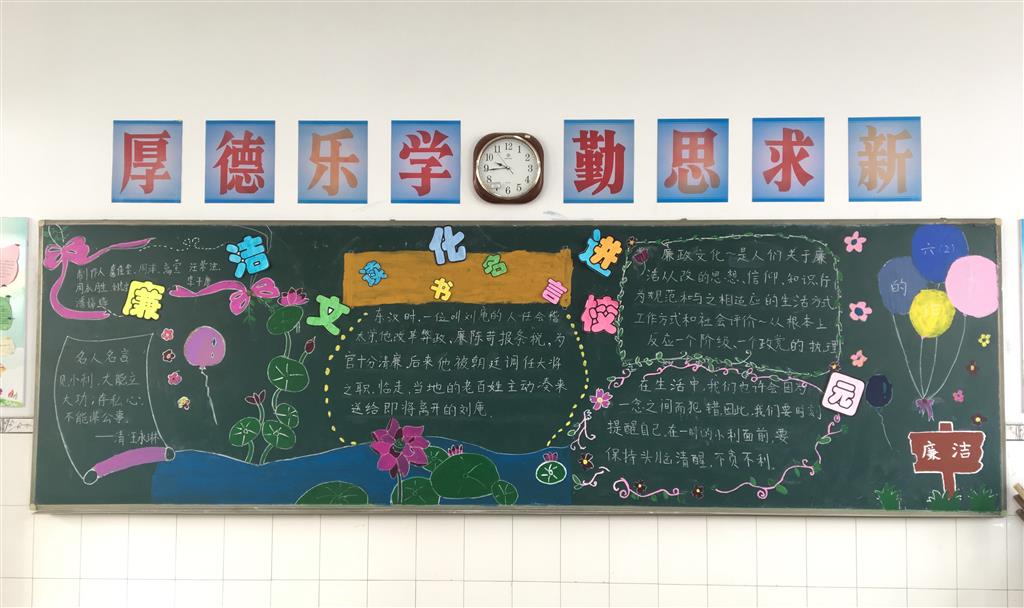 厚德乐学
勤思求新
廉洁文化进校园
读书名言
制作人
名人名言
见小利,大能立
大功;存私心,
不能谋公事。
——清 王永琳
东汉时,一位叫刘虎的人任会稽
太守他改革弊政,廉除苛报杂税,为
官十分清廉后来他被朝廷调任大将
之职.临走,当地的老百姓主动凑来
送给即将离开的刘虎.
廉政文化,是人们关于廉
洁从政的思想、信仰、知识行
为规范和与之相适应的生活方式
工作方式和社会评价~从根本上
反应一个阶级、一个政党的执理
在生活中,我们也许会因为
一念之间而犯错因此,我们要时刻
提醒自己,在一时的小利面前,要
保持头脑清醒,不贪不利.
六(2)
的
廉洁